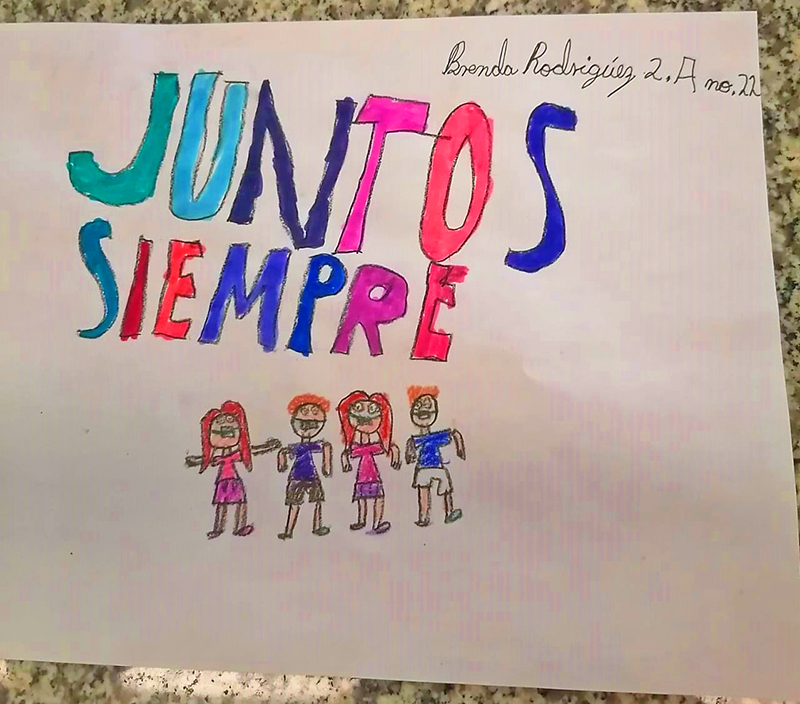 Brenda Rodrigúez 2.A no.22
JUNTOS
SIEMPRE